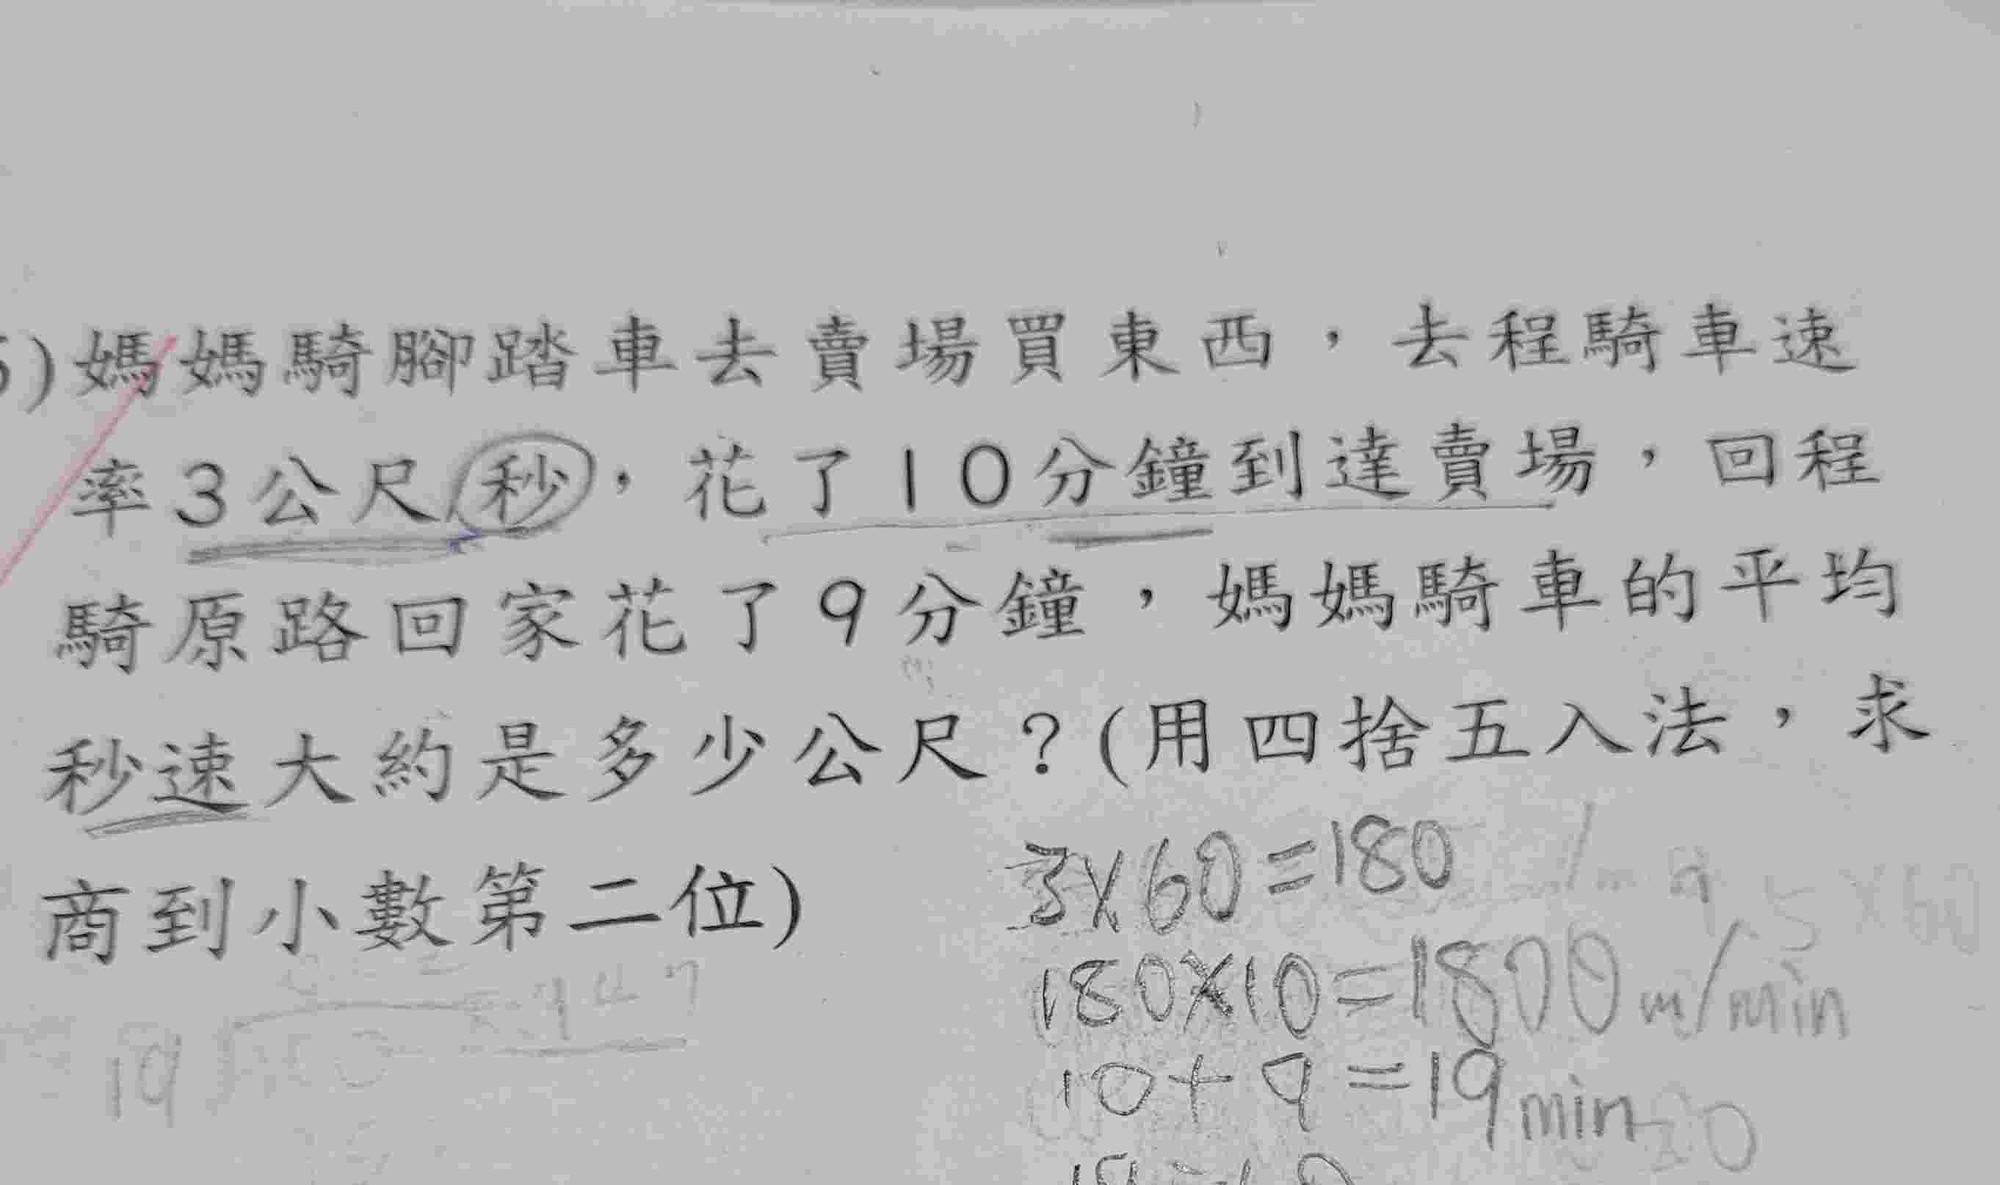 )媽媽騎腳踏車去賣場買東西，去程騎車速
率3公尺/秒，花了10分鐘到達賣場，回程
騎原路回家花了9分鐘，媽媽騎車的平均
秒速大約是多少公尺？(用四捨五入法，求
商到小數第二位)
3×60=180
180×10=1800m/min
10+9=19min
19